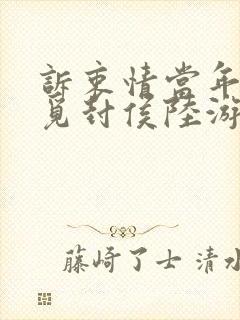 訴衷情當年
覓封侯陸游
藤崎了士 清水